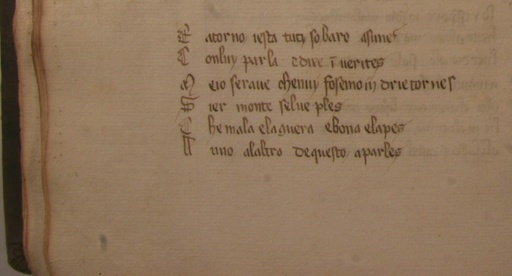 E atorno iesta tuti so baro asune
C onluy parla e dire ī verites
M eio serave chenuy fosemo in drietornes
S ier monte se lue ples
C he mala e laguera e bona elapes
L uno alaltro de questo aparles